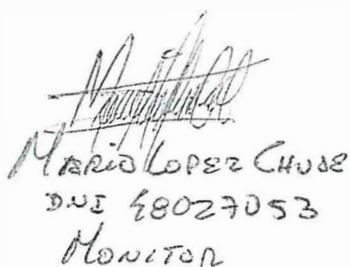 MARIO LOPEZ CHUJE
DNI 48027053
MONITOR